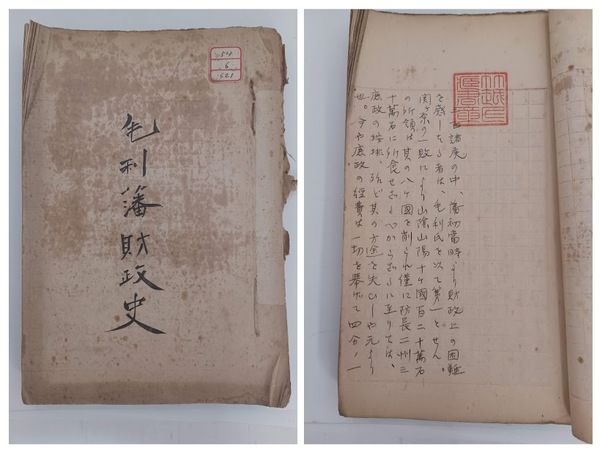 毛利藩財政史
6
諸侯の中、藩初當時より財政上の困難
を感じたる者は、毛利氏を以て第一とせん。
関ヶ原の一敗により山陰山陽十ヶ國百二十萬石
の所領は其の八ヶ國を削られ僅に防長二州三
十萬石に せざるべからざるに至りては、
政の 殆ど其の方途を失ひしや元より
也。今や 政の経費は一切を挙げて四分ノ一